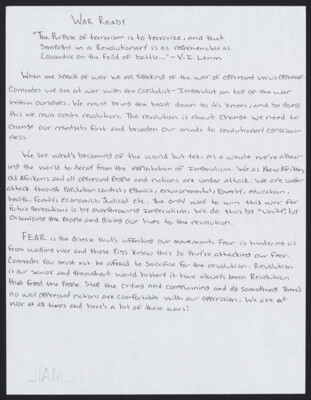 WAR READY
"The Purpose of terrorism is to terrorize, and that
Sympathy in a Revolutionary is as reprehensible as
Cowardice on the field of battle..." - V.I. Lenin
When we speak of war we are speaking of the war of oppressed versus oppressor
Comrades we are at war with the Capitalist-Imperialist on top of the war
within ourselves. We must bring the beast down to it's knees, and by doing
this we must create revolution. The revolution is about change we need to
change our mindsets first and broaden our minds to revolutionary conscious-
ness.
We see what's becoming of the world but yet as a whole we're allow-
ing the world to decay from the exploitation of Imperialism. We as New Afrikans,
old Afrikans and all oppressed People and nations are under attack. We are under
attack through Population control, ethnics, environmental, Poverty, education,
health, Food, economics, Judicial etc. The only way to win this war for
future generations is by overthrowing Imperialism. We do this by "Unity", by
Organizing the People and giving our lives to the revolution.
FEAR is the disease that's infecting our movement. Fear is hindering us
from waging war and these Pigs know this so they're attacking our fear.
Comrades you must not be afraid to sacrifice for the revolution. Revolution
is our Savior and throughout world history it have always been Revolution
that freed the People. Stop the crying and complaining and do something. There's
no way oppressed nations are comfortable with our oppression. We are at
war at all times and here's a list of these wars: